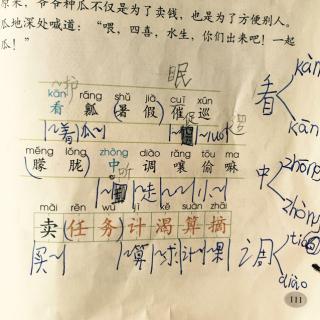 原来，爷爷种瓜不仅是为了卖钱，也是为了方便别人。
瓜地深处喊道：“喂，四喜，水生，你们出来吧！一起
瓜！”
眠
kān ráng shǔ jià cuī xún
看 瓤 (暑 假) 催 巡
|~着|瓜~|
促
逻
méng lóng zhōng diào rǎng tōu ma
朦 胧 中 调 嚷 偷 嘛
听
|~走~|~|小~|
mài rèn wù jì kě suàn zhāi
卖 (任 务) 计 渴 算 摘
|买~| |~算|~求|计~|~果|
看 kàn
kān
中 zhōng
zhòng
调 tiáo
diào
111